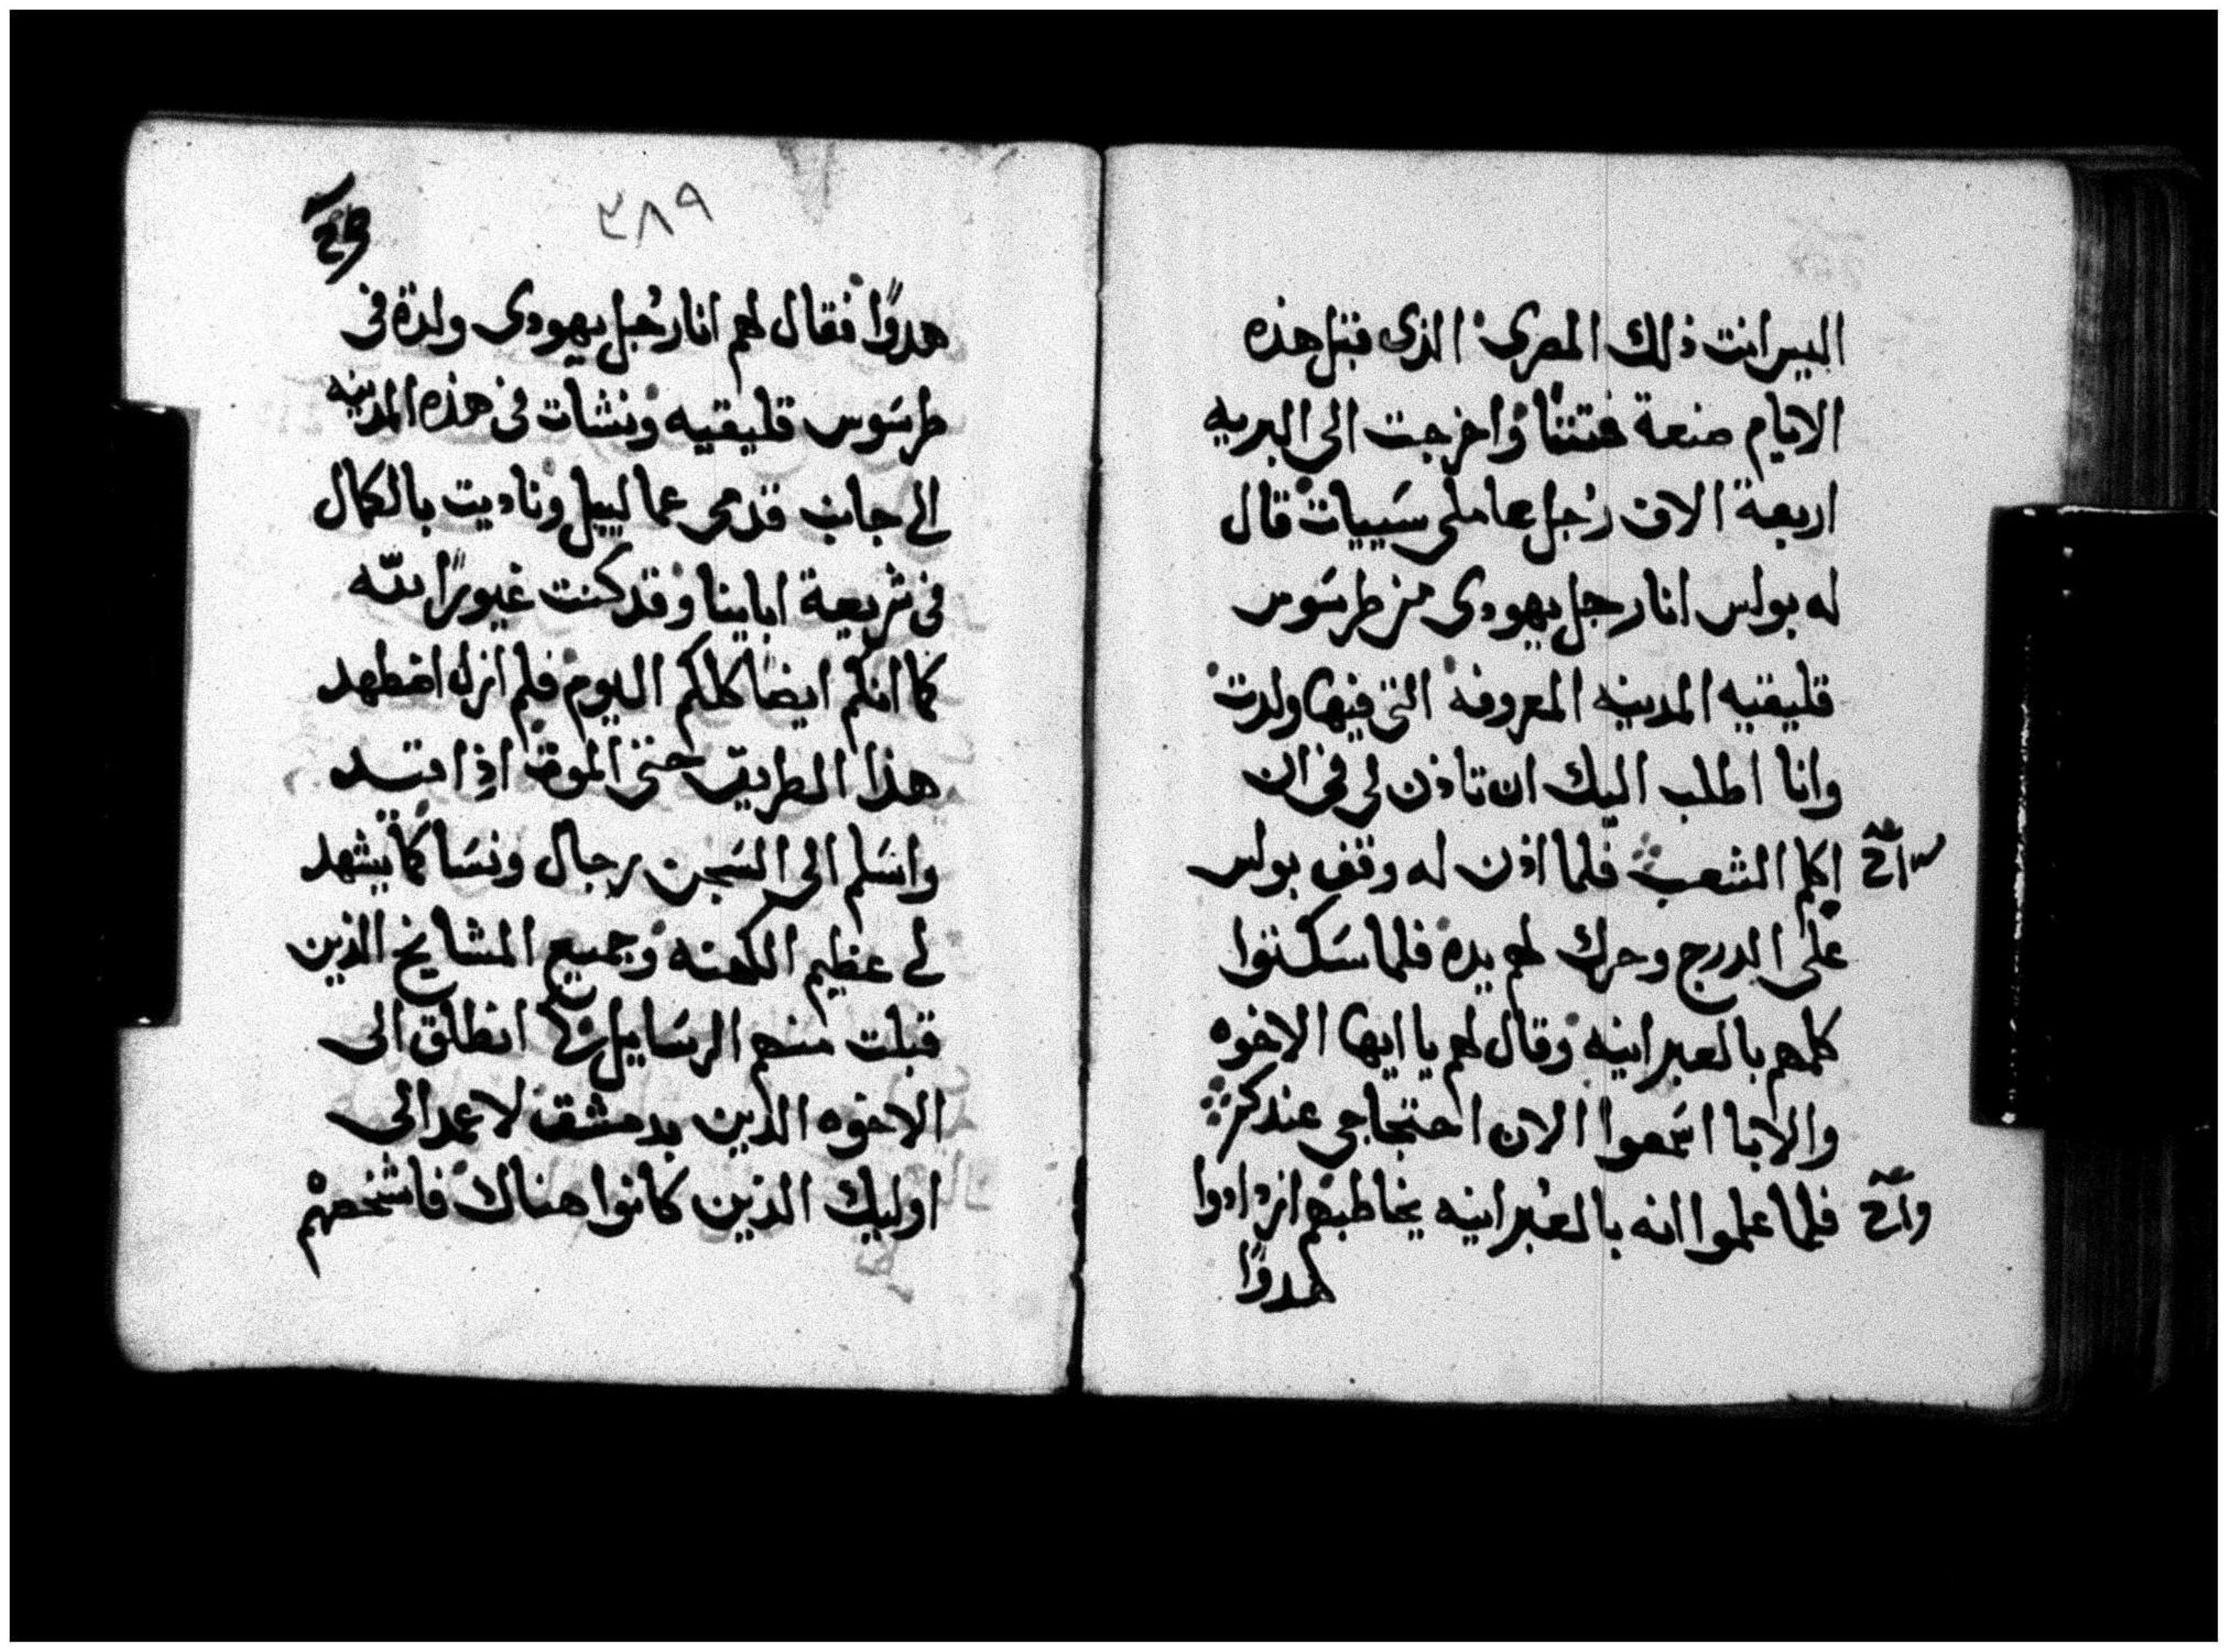 اليس انت ذلك المصري الذي قبل هذه
الايام صنعة فتنتاً واخرجت الى البريه
اربعة الاف رجل عاملى سييات قال
له بولس انا رجل يهودى من طرسوس
قليقيه المدينه المعروفه التى فيها ولدت
وانا اطلب اليك ان تاذن لى فى ان
اكلم الشعب فلما اذن له وقف بولس
على الدرج وحرك لهم يده فلما سكتوا
كلمهم بالعبرانيه وقال لهم يا ايها الاخوه
والابا اسمعوا الان احتجاجى عندكم
فلما علموا انه بالعبرانيه يخاطبهم ازدادوا
هدوًا
٣٨٩
هدوًا فقال لهم انا رجل يهودى ولدة فى
طرسوس قليقيه ونشات فى هذه المدينه
الى جانب قدمى عماليل وناديت بالكمال
فى شريعة ابابينا وقد كنت غيورًا لله
كما انكم ايضًا كلكم اليوم فلم ازل اضطهد
هذا الطريق حتى الموت اذ اقيد
واسلم الى السجن رجال ونسا كما يشهد
لى عظيم الكهنه وجميع المشايخ الذين
قبلت منهم الرسايل انطلق الى
الاخوه الذين بدمشق لاعمد الى
اوليك الذين كانوا هناك فاشخصهم